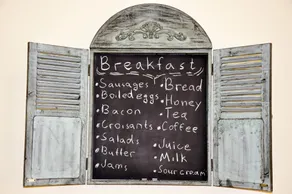 Breakfast
• Sausages
• Boiled eggs
• Bacon
• Croissants
• Salads
• Butter
• Jams
• Bread
• Honey
• Tea
• Coffee
• Juice
• Milk
• Sour cream